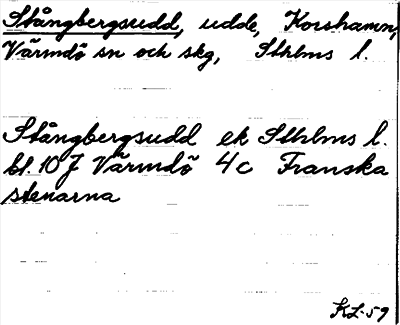 Stångbergsudd, udde, Korshamn,
Värmdö sn och skg, Sthlms l.
Stångbergsudd ek Sthlms l.
bl. 10 J Värmdö 4c Franska
stenarna
KL-59